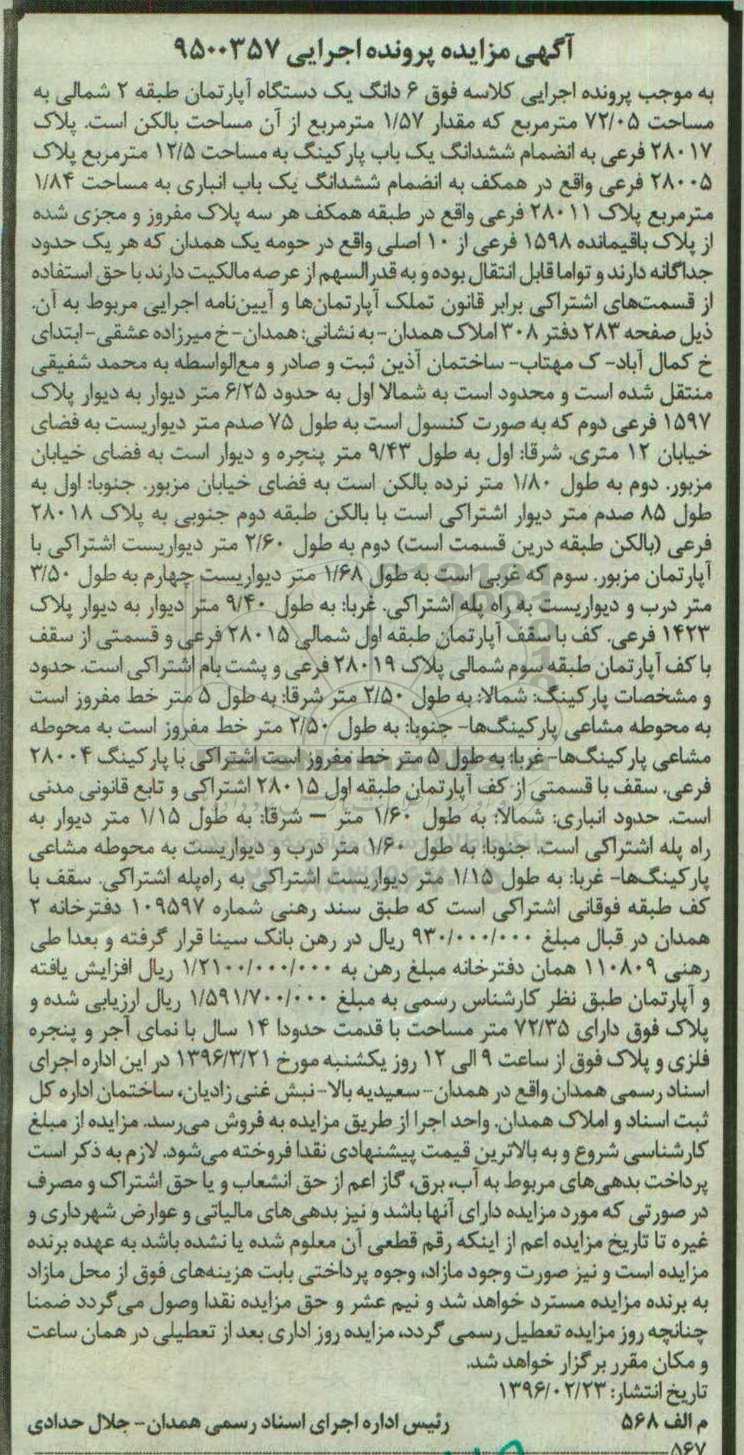 آگهی مزایده پرونده اجرایی ۹۵۰۰۳۵۷
به موجب پرونده اجرایی کلاسه فوق ۶ دانگ یک دستگاه آپارتمان طبقه ۲ شمالی به
مساحت ۷۲/۰۵ مترمربع که مقدار ۱/۵۷ مترمربع از آن مساحت بالکن است. پلاک
۲۸۰۱۷ فرعی به انضمام ششدانگ یک باب پارکینگ به مساحت ۱۲/۵ مترمربع پلاک
۲۸۰۰۵ فرعی واقع در همکف به انضمام ششدانگ یک باب انباری به مساحت ۱/۸۴
مترمربع پلاک ۲۸۰۱۱ فرعی واقع در طبقه همکف هر سه پلاک مفروز و مجزی شده
از پلاک باقیمانده ۱۵۹۸ فرعی از ۱۰ اصلی واقع در حومه یک همدان که هر یک حدود
جداگانه دارند و تواما قابل انتقال بوده و به قدرالسهم از عرصه مالکیت دارند با حق استفاده
از قسمت‌های اشتراکی برابر قانون تملک آپارتمان‌ها و آیین‌نامه اجرایی مربوط به آن.
ذیل صفحه ۲۸۳ دفتر ۳۰۸ املاک همدان- به نشانی: همدان- خ میرزاده عشقی- ابتدای
خ کمال آباد- ک مهتاب- ساختمان آذین ثبت و صادر و مع‌الواسطه به محمد شفیقی
منتقل شده است و محدود است به شمالا اول به حدود ۶/۲۵ متر دیوار به دیوار پلاک
۱۵۹۷ فرعی دوم که به صورت کنسول است به طول ۷۵ صدم متر دیواریست به فضای
خیابان ۱۲ متری. شرقا: اول به طول ۹/۴۳ متر پنجره و دیوار است به فضای خیابان
مزبور. دوم به طول ۱/۸۰ متر نرده بالکن است به فضای خیابان مزبور. جنوبا: اول به
طول ۸۵ صدم متر دیوار اشتراکی است با بالکن طبقه دوم جنوبی به پلاک ۲۸۰۱۸
فرعی (بالکن طبقه درین قسمت است) دوم به طول ۲/۶۰ متر دیواریست اشتراکی با
آپارتمان مزبور. سوم که غربی است به طول ۱/۶۸ متر دیواریست چهارم به طول ۳/۵۰
متر درب و دیواریست به راه پله اشتراکی. غربا: به طول ۹/۴۰ متر دیوار به دیوار پلاک
۱۴۲۳ فرعی. کف با سقف آپارتمان طبقه اول شمالی ۲۸۰۱۵ فرعی و قسمتی از سقف
با کف آپارتمان طبقه سوم شمالی پلاک ۲۸۰۱۹ فرعی و پشت بام اشتراکی است. حدود
و مشخصات پارکینگ: شمالا: به طول ۲/۵۰ متر شرقا: به طول ۵ متر خط مفروز است
به محوطه مشاعی پارکینگ‌ها- جنوبا: به طول ۲/۵۰ متر خط مفروز است به محوطه
مشاعی پارکینگ‌ها- غربا: به طول ۵ متر خط مفروز است اشتراکی با پارکینگ ۲۸۰۰۴
فرعی. سقف با قسمتی از کف آپارتمان طبقه اول ۲۸۰۱۵ اشتراکی و تابع قانونی مدنی
است. حدود انباری: شمالا: به طول ۱/۶۰ متر – شرقا: به طول ۱/۱۵ متر دیوار به
راه پله اشتراکی است. جنوبا: به طول ۱/۶۰ متر درب و دیواریست به محوطه مشاعی
پارکینگ‌ها- غربا: به طول ۱/۱۵ متر دیواریست اشتراکی به راه‌پله اشتراکی. سقف با
کف طبقه فوقانی اشتراکی است که طبق سند رهنی شماره ۱۰۹۵۹۷ دفترخانه ۲
همدان در قبال مبلغ ۹۳۰/۰۰۰/۰۰۰ ریال در رهن بانک سینا قرار گرفته و بعدا طی
رهنی ۱۱۰۸۰۹ همان دفترخانه مبلغ رهن به ۱/۲۱۰۰/۰۰۰/۰۰۰ ریال افزایش یافته
و آپارتمان طبق نظر کارشناس رسمی به مبلغ ۱/۵۹۱/۷۰۰/۰۰۰ ریال ارزیابی شده و
پلاک فوق دارای ۷۲/۳۵ متر مساحت با قدمت حدودا ۱۴ سال با نمای آجر و پنجره
فلزی و پلاک فوق از ساعت ۹ الی ۱۲ روز یکشنبه مورخ ۱۳۹۶/۳/۲۱ در این اداره اجرای
اسناد رسمی همدان واقع در همدان- سعیدیه بالا- نبش غنی زادیان، ساختمان اداره کل
ثبت اسناد و املاک همدان. واحد اجرا از طریق مزایده به فروش می‌رسد. مزایده از مبلغ
کارشناسی شروع و به بالاترین قیمت پیشنهادی نقدا فروخته می‌شود. لازم به ذکر است
پرداخت بدهی‌های مربوط به آب، برق، گاز اعم از حق انشعاب و یا حق اشتراک و مصرف
در صورتی که مورد مزایده دارای آنها باشد و نیز بدهی‌های مالیاتی و عوارض شهرداری و
غیره تا تاریخ مزایده اعم از اینکه رقم قطعی آن معلوم شده یا نشده باشد به عهده برنده
مزایده است و نیز صورت وجود مازاد، وجوه پرداختی بابت هزینه‌های فوق از محل مازاد
به برنده مزایده مسترد خواهد شد و نیم عشر و حق مزایده نقدا وصول می‌گردد ضمنا
چنانچه روز مزایده تعطیل رسمی گردد، مزایده روز اداری بعد از تعطیلی در همان ساعت
و مکان مقرر برگزار خواهد شد.
تاریخ انتشار: ۱۳۹۶/۰۲/۲۳
م الف ۵۶۸
رئیس اداره اجرای اسناد رسمی همدان- جلال حدادی
۵۶۷